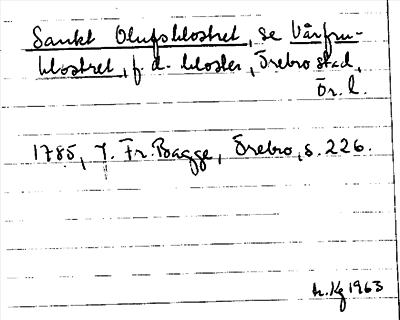 Sankt Olufsklostret, se Vårfru-
klostret, f. d. kloster, Örebro stad,
Ör. l.
1785, J. Fr. Bagge, Örebro, s. 226.
1963